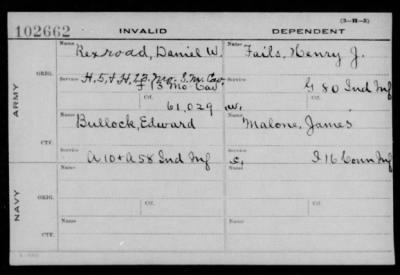 (3-H-3)
102662 INVALID DEPENDENT
Name Name
Rexroad, Daniel W. Fails, Henry J.
ARMY
ORIG.
Service Service
H, 5, & H, 13 Mo. S.M. Cav
F 13 Mo Cav G 80 Ind Inf
Ctf. Ctf.
61,029 W.
Name Name
Bullock, Edward Malone, James
CTF.
Service Service
A 10 & A 58 Ind Inf C. I 16 Conn Inf
NAVY
Name Name
ORIG.
Ctf. Ctf.
Name Name
CTF.